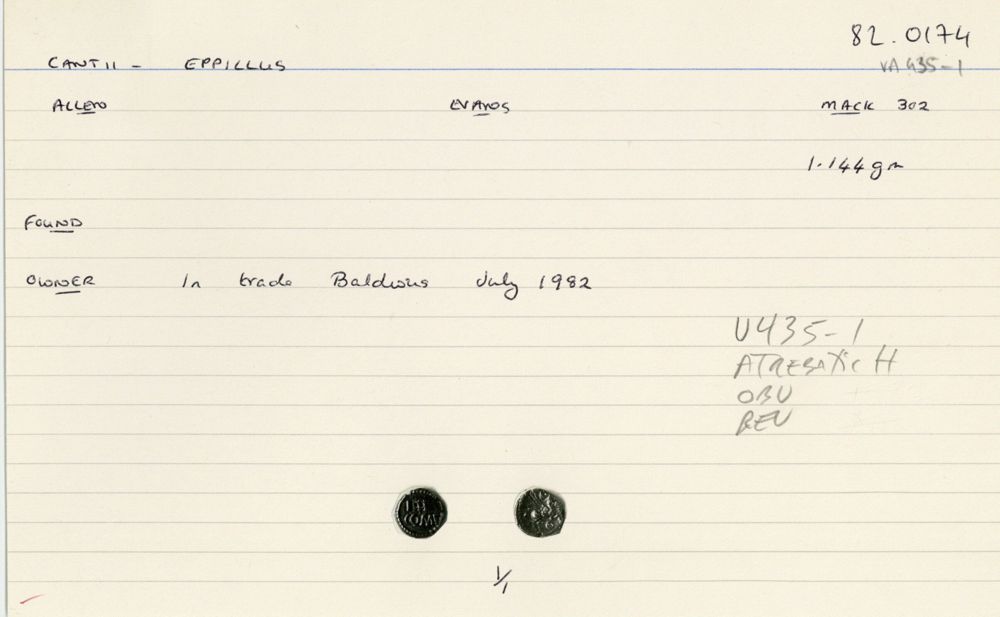 82.0174
CANTII - EPPILLUS VA 435-1
ALLEN EVANS MACK 302
1.144gm
FOUND
OWNER In trade Baldwins July 1982
V435-1
ATREBATIC H
OBV
REV
COMF
1/1